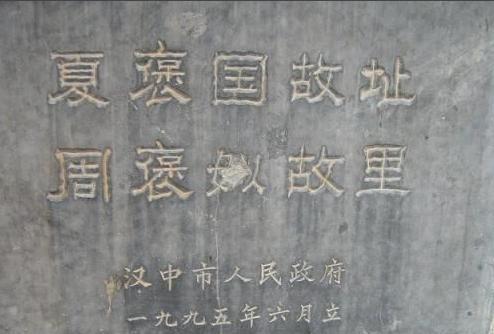 夏褒国故址
周褒姒故里
汉中市人民政府
一九九五年六月立